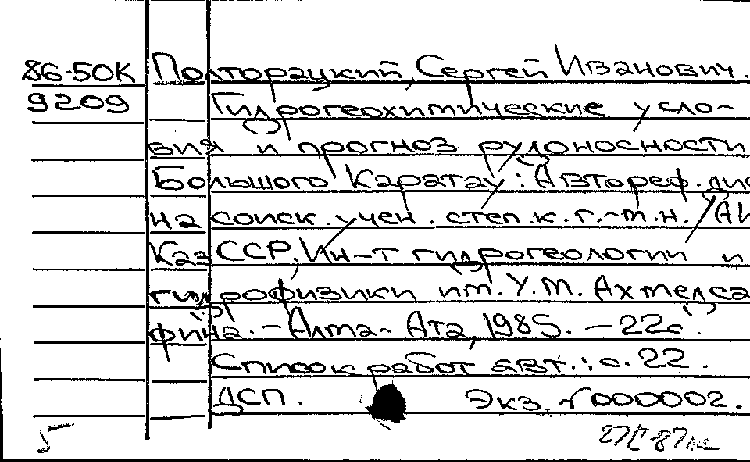 86-50К Полторацкий, Сергей Иванович.
9209 Гидрогеохимические усло-
вия и прогноз рудоносности
Большого Каратау: Автореф. дис
на соиск. учен. степ. к.г.-м.н. /АН
КазССР, Ин-т гидрогеологии и
гидрофизики им. У.М. Ахмедса
фина. - Алма-Ата, 1985. - 22с.
Список работ авт.: с. 22.
ДСП. Экз. №000002.